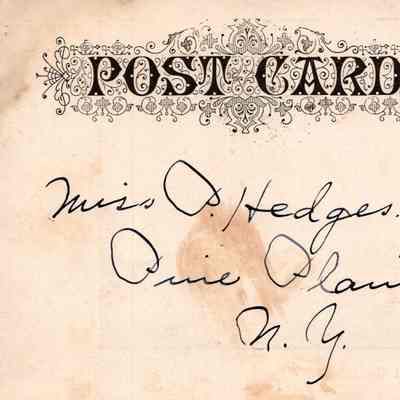 POST CARD
Miss P. Hedges.
Pine Plai
N. Y.